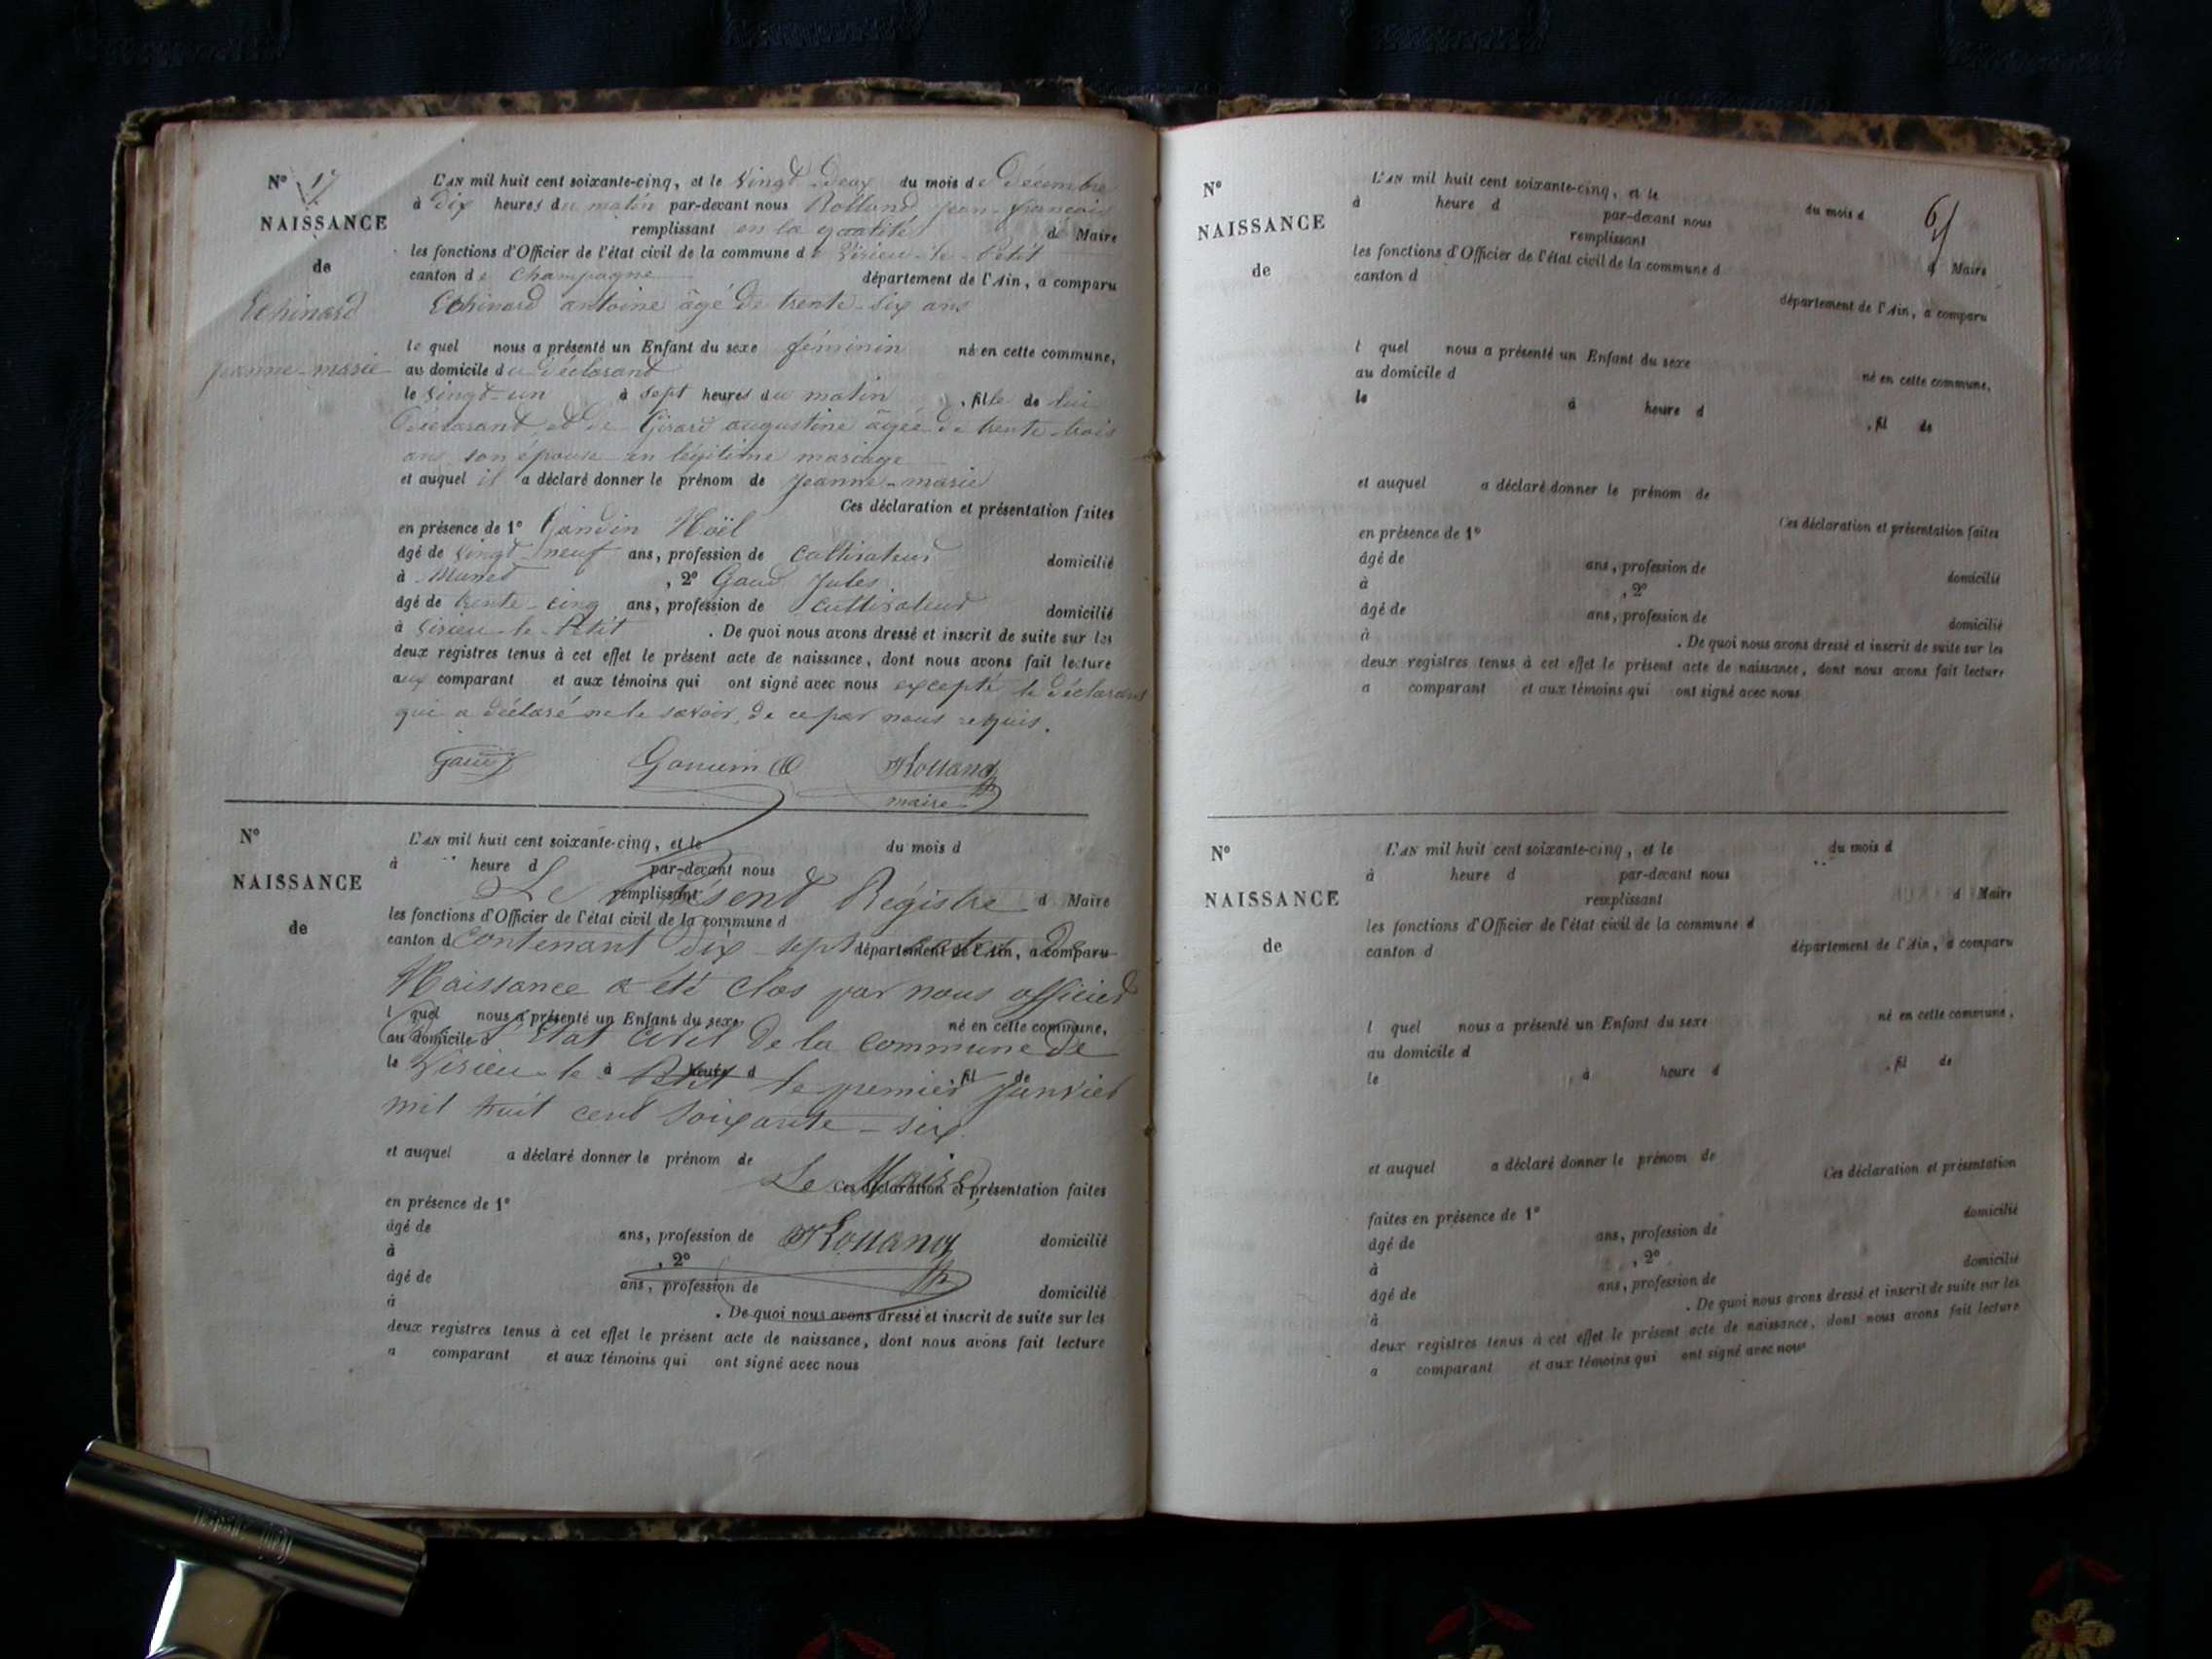 N° 17
NAISSANCE
de
Echinard
Jeanne-marie
L'AN mil huit cent soixante-cinq, et le Vingt Deux du mois de Décembre
à Dix heures du matin par-devant nous Rolland jean-françois
remplissant en la qualité de Maire
les fonctions d'Officier de l'état civil de la commune de Virieu-le-Petit
canton de Champagne département de l'Ain, a comparu
Echinard antoine âgé de trente-six ans
le quel nous a présenté un Enfant du sexe féminin né en cette commune,
au domicile du Déclarant
le Vingt-un à sept heures du matin , fille de lui
Déclarant et de Girard augustine âgée de trente-trois
ans son épouse en légitime mariage
et auquel il a déclaré donner le prénom de Jeanne-marie
Ces déclaration et présentation faites
en présence de 1° Noël
âgé de vingt-neuf ans, profession de Cultivateur domicilié
à Munet , 2° Gaud Jules
âgé de trente-cinq ans, profession de Cultivateur domicilié
à Virieu-le-Petit . De quoi nous avons dressé et inscrit de suite sur les
deux registres tenus à cet effet le présent acte de naissance, dont nous avons fait lecture
aux comparant et aux témoins qui ont signé avec nous excepté le Déclarant
qui a déclaré ne le savoir, de ce par nous requis.
Rolland
maire
N°
NAISSANCE
de
L'AN mil huit cent soixante-cinq, et le du mois d
à heure d par-devant nous
Le Présent Régistre
remplissant d Maire
les fonctions d'Officier de l'état civil de la commune d
canton d département de l'Ain, a comparu
Contenant Dix-sept actes De
Naissance a été Clos par nous officier
l quel nous a présenté un Enfant du sexe né en cette commune,
au domicile d
De l'Etat Civil De la Commune De
le à heure d , fil de
Virieu-le-Petit le premier Janvier
mil huit cent soixante-six.
et auquel a déclaré donner le prénom de
Le Maire,
Ces déclaration et présentation faites
en présence de 1°
âgé de ans, profession de domicilié
Rolland
à , 2°
âgé de ans, profession de domicilié
à . De quoi nous avons dressé et inscrit de suite sur les
deux registres tenus à cet effet le présent acte de naissance, dont nous avons fait lecture
a comparant et aux témoins qui ont signé avec nous
N°
NAISSANCE
de
L'AN mil huit cent soixante-cinq, et le du mois d
à heure d par-devant nous
remplissant d Maire
les fonctions d'Officier de l'état civil de la commune d
canton d département de l'Ain, a comparu
l quel nous a présenté un Enfant du sexe né en cette commune,
au domicile d
le à heure d , fil de
et auquel a déclaré donner le prénom de
Ces déclaration et présentation faites
en présence de 1°
âgé de ans, profession de domicilié
à , 2°
âgé de ans, profession de domicilié
à . De quoi nous avons dressé et inscrit de suite sur les
deux registres tenus à cet effet le présent acte de naissance, dont nous avons fait lecture
a comparant et aux témoins qui ont signé avec nous
N°
NAISSANCE
de
L'AN mil huit cent soixante-cinq, et le du mois d
à heure d par-devant nous
remplissant d Maire
les fonctions d'Officier de l'état civil de la commune d
canton d département de l'Ain, a comparu
l quel nous a présenté un Enfant du sexe né en cette commune,
au domicile d
le à heure d , fil de
et auquel a déclaré donner le prénom de
Ces déclaration et présentation
faites en présence de 1° domicilié
âgé de ans, profession de
à , 2° domicilié
âgé de ans, profession de
à . De quoi nous avons dressé et inscrit de suite sur les
deux registres tenus à cet effet le présent acte de naissance, dont nous avons fait lecture
a comparant et aux témoins qui ont signé avec nous